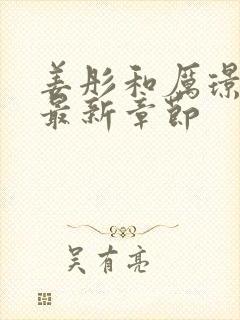 姜彤和厲璟
最新章節
吴有亮